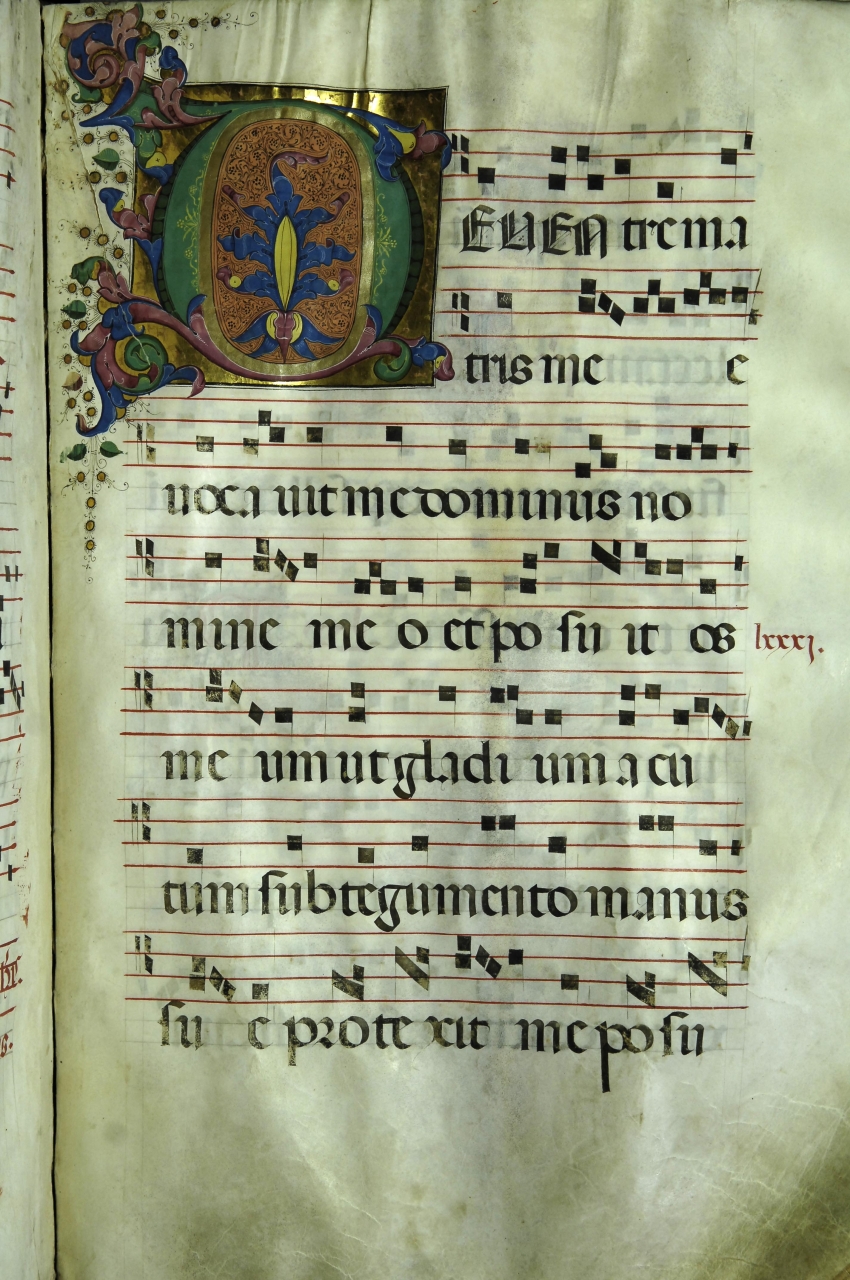 DE UEN tre ma
tris me e
uoca uit me dominus no
mine me o et po su it os
lxxxj.
me um ut gladi um acu
tum sub tegumento manus
su e prote xit me po su